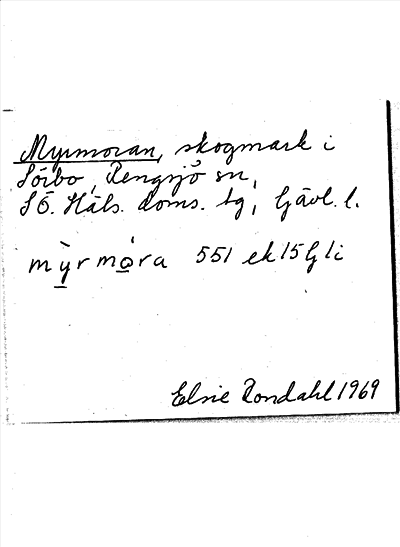 Myrmoran, skogmark i
Sörbo, Rengsjö sn,
SÖ. Häls. doms. tg, Gävl. l.
mỳrmóra 551 ek 15 G li
Elsie Rondahl 1969